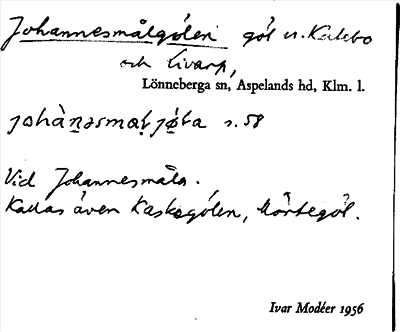 Johannesmålgölen göl n. Kalebo
och Livarp,
Lönneberga sn, Aspelands hd, Klm. l.
s. 58
Vid Johannesmåla.
Kallas även Kaskegölen, Mörtegöl.
Ivar Modéer 1956